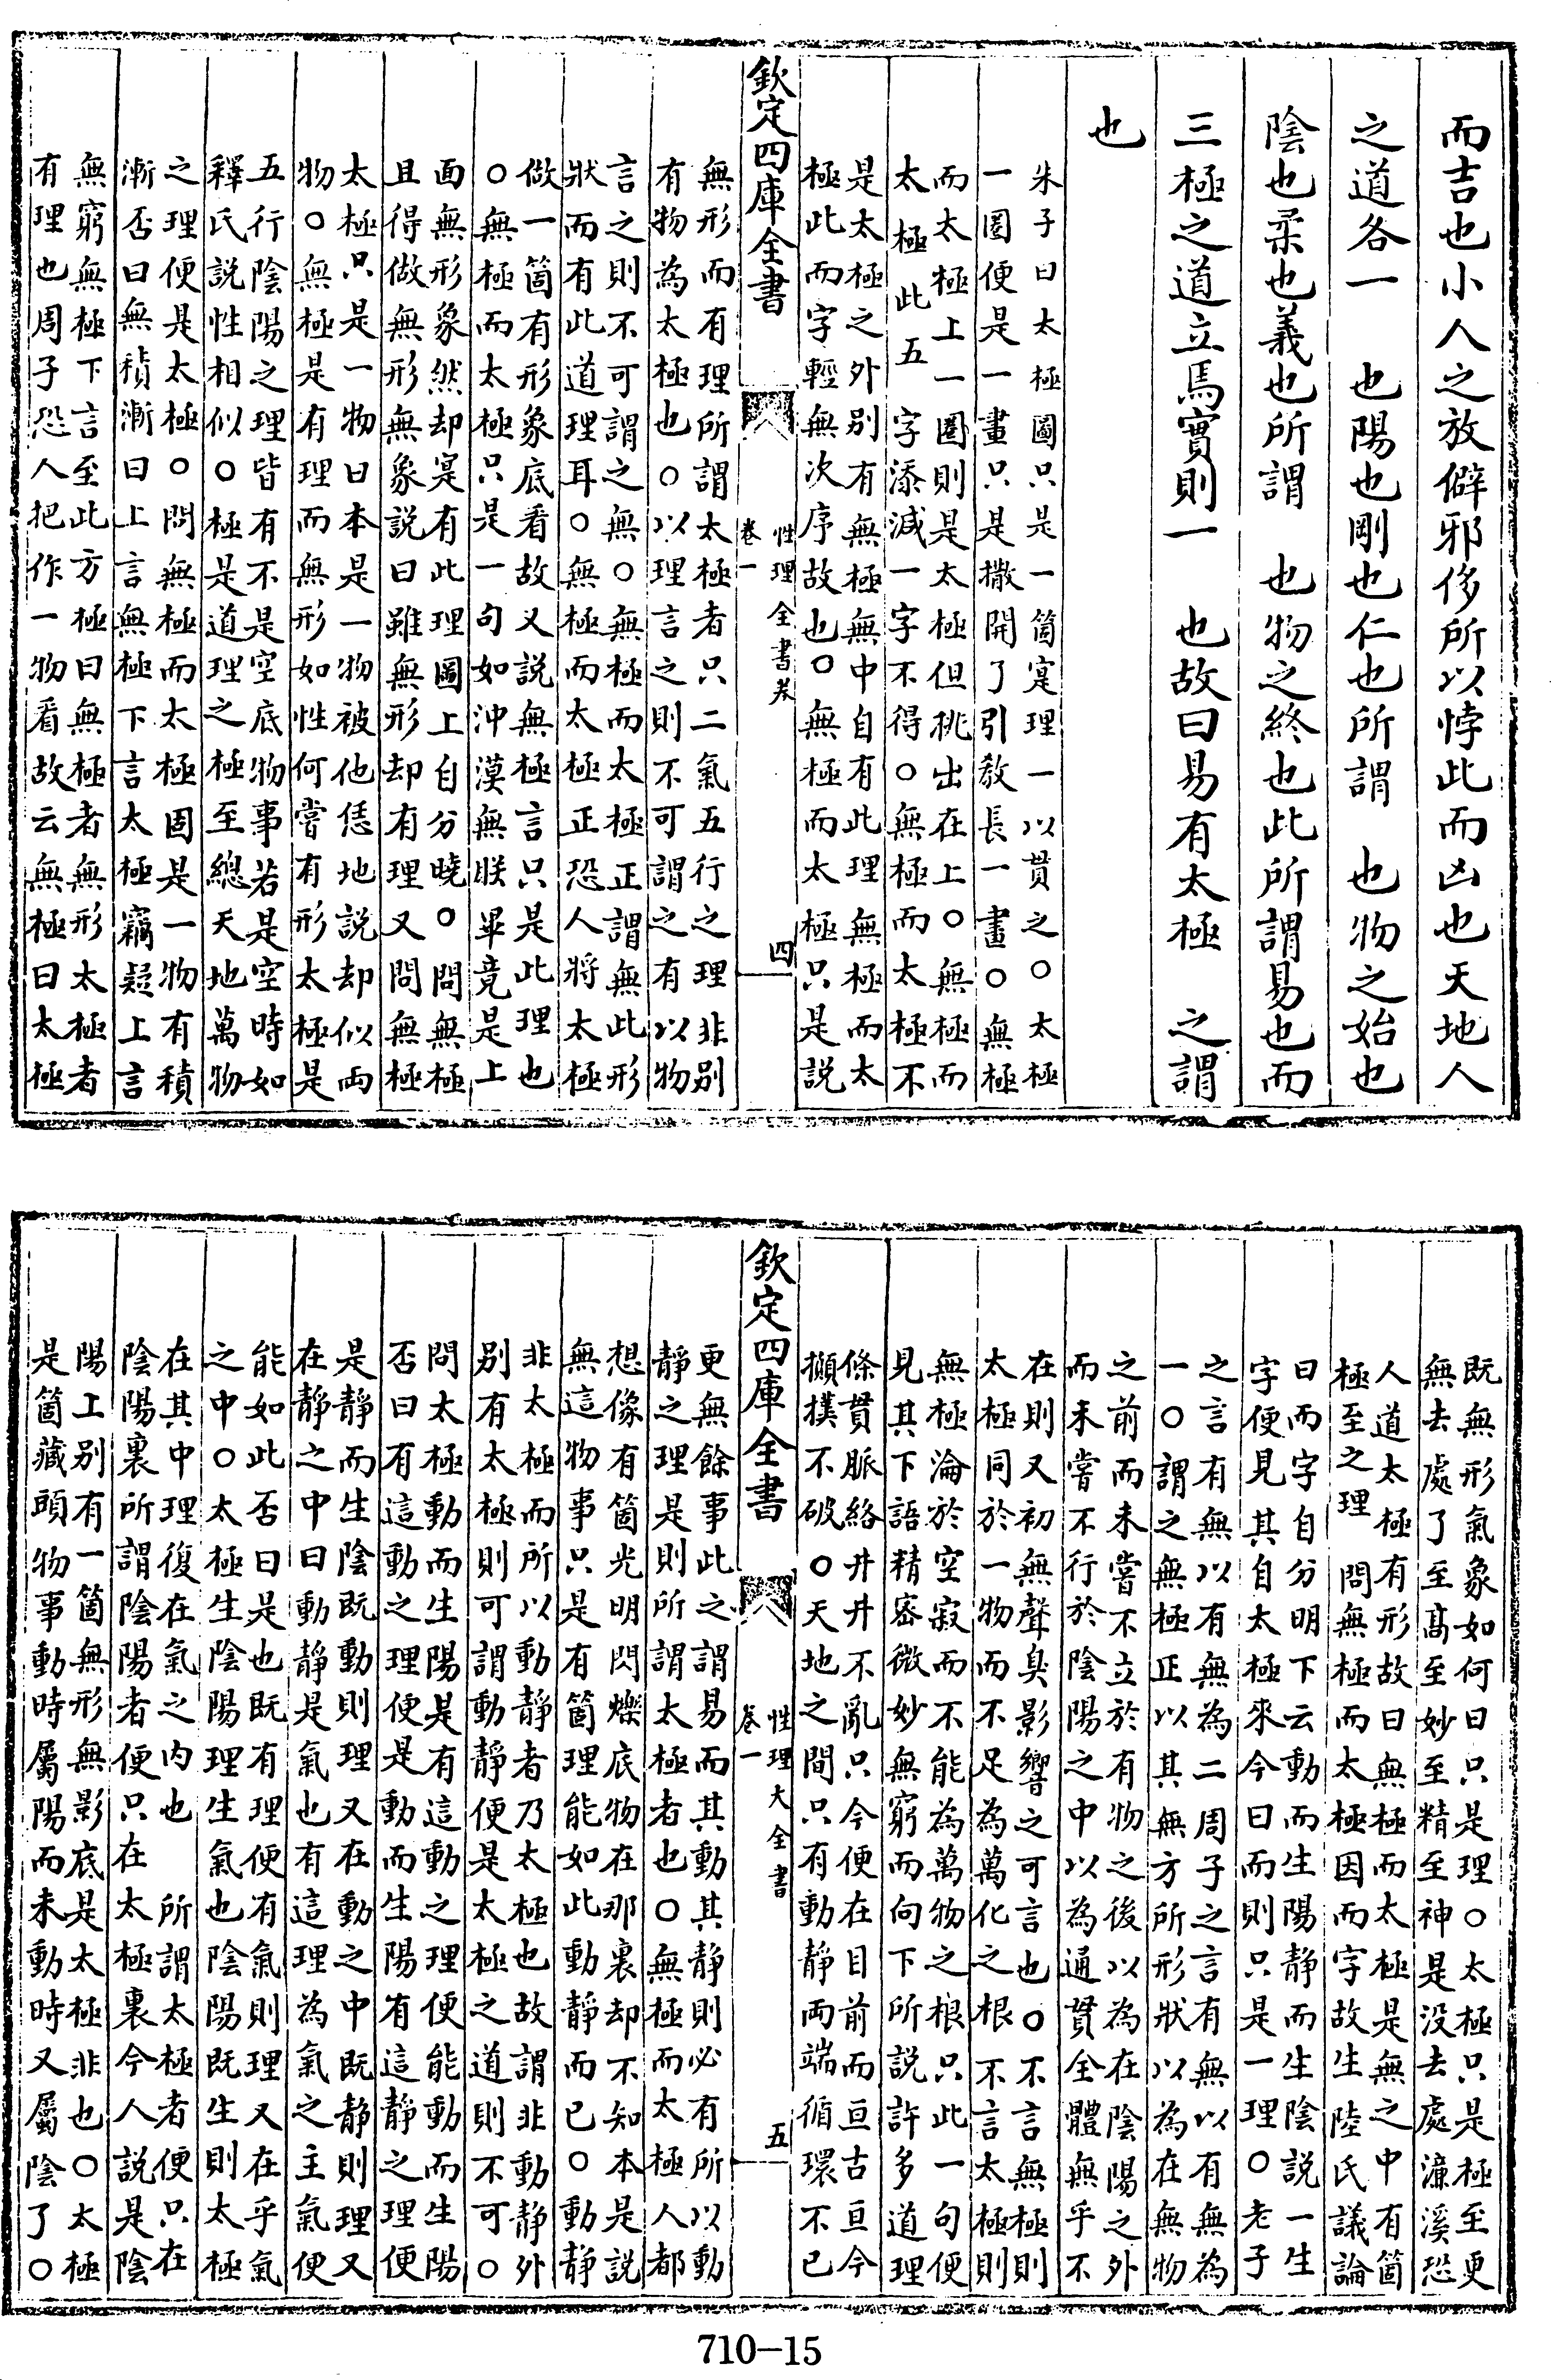 而吉也小人之放僻邪侈所以悖此而凶也天地人
之道各一 也陽也剛也仁也所謂 也物之始也
陰也柔也義也所謂 也物之終也此所謂易也而
三極之道立焉實則一 也故曰易有太極 之謂
也
朱子曰太極圖只是一箇寔理一以貫之○太極
一圈便是一畫只是撒開了引教長一畫○無極
而太極上一圈則是太極但挑出在上○無極而
太極此五字添減一字不得○無極而太極不
是太極之外别有無極無中自有此理無極而太
極此而字輕無次序故也○無極而太極只是説
欽定四庫全書
性理全書
卷一
四
無形而有理所謂太極者只二氣五行之理非别
有物為太極也○以理言之則不可謂之有以物
言之則不可謂之無○無極而太極正謂無此形
狀而有此道理耳○無極而太極正恐人將太極
做一箇有形象底看故又説無極言只是此理也
○無極而太極只是一句如沖漠無眹畢竟是上
面無形象然却寔有此理圖上自分曉○問無極
且得做無形無象説曰雖無形却有理又問無極
太極只是一物曰本是一物被他恁地説却似両
物○無極是有理而無形如性何嘗有形太極是
五行陰陽之理皆有不是空底物事若是空時如
釋氏説性相似○極是道理之極至總天地萬物
之理便是太極○問無極而太極固是一物有積
漸否曰無積漸曰上言無極下言太極竊疑上言
無窮無極下言至此方極曰無極者無形太極者
有理也周子恐人把作一物看故云無極曰太極
既無形氣象如何曰只是理○太極只是極至更
無去處了至髙至妙至精至神是没去處濓溪恐
人道太極有形故曰無極而太極是無之中有箇
極至之理 問無極而太極因而字故生陸氏議論
曰而字自分明下云動而生陽静而生陰説一生
字便見其自太極來今曰而則只是一理○老子
之言有無以有無為二周子之言有無以有無為
一○謂之無極正以其無方所形狀以為在無物
之前而未嘗不立於有物之後以為在陰陽之外
而未嘗不行於陰陽之中以為通貫全體無乎不
在則又初無聲臭影響之可言也○不言無極則
太極同於一物而不足為萬化之根不言太極則
無極淪於空寂而不能為萬物之根只此一句便
見其下語精宻微妙無窮而向下所説許多道理
條貫脈絡井井不亂只今便在目前而亘古亘今
攧撲不破○天地之間只有動静両端循環不已
欽定四庫全書
性理大全書
卷一
五
更無餘事此之謂易而其動其静則必有所以動
静之理是則所謂太極者也○無極而太極人都
想像有箇光明閃爍底物在那裏却不知本是説
無這物事只是有箇理能如此動静而已○動静
非太極而所以動静者乃太極也故謂非動静外
别有太極則可謂動静便是太極之道則不可○
問太極動而生陽是有這動之理便能動而生陽
否曰有這動之理便是動而生陽有這静之理便
是静而生陰既動則理又在動之中既静則理又
在静之中曰動静是氣也有這理為氣之主氣便
能如此否曰是也既有理便有氣則理又在乎氣
之中○太極生陰陽理生氣也陰陽既生則太極
在其中理復在氣之内也 所謂太極者便只在
陰陽裏所謂陰陽者便只在太極裏今人説是陰
陽上别有一箇無形無影底是太極非也○太極
是箇藏頭物事動時屬陽而未動時又屬陰了○
710-15